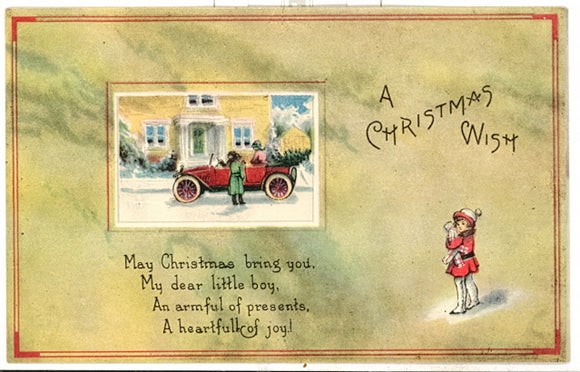 A
CHRISTMAS
WISH
May Christmas bring you,
My dear little boy,
An armful of presents,
A heartfull of joy!